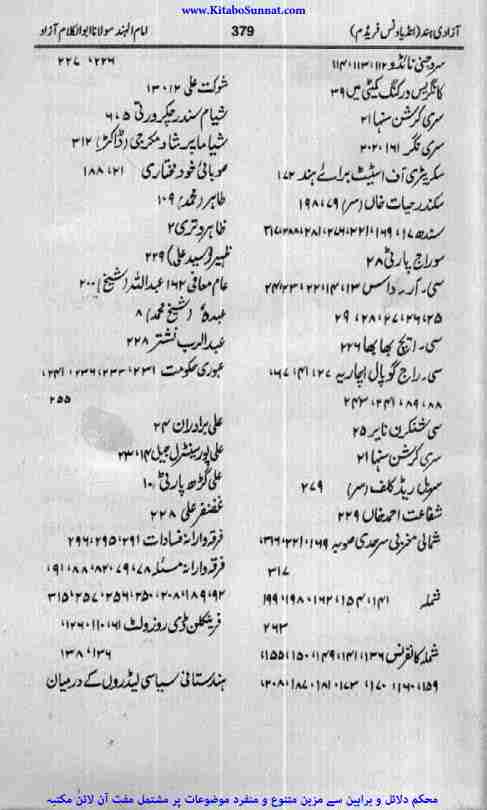 www.KitaboSunnat.com
آزادی ہند (انڈیا ونس فریڈم) 379 امام الہند مولانا ابوالکلام آزاد
سروجنی نائڈو ۱۱۲، ۱۱۳، ۱۱۴
کانگریس ورکنگ کمیٹی میں ۳۹
سری کرشن سنہا ۲۱
سری نگر ۱۶۱، ۲۰۲
سکریٹری آف اسٹیٹ برائے ہند ۱۷۲
سکندر حیات خاں (سر) ۷۹، ۱۹۸
سندھ ۱۷، ۱۶۹، ۲۲۱، ۲۷۶، ۲۸۱، ۲۸۸، ۳۱۷
سوراج پارٹی ۲۸
سی۔ آر۔ داس ۱۳، ۱۴، ۲۲، ۲۳، ۲۴
۲۵، ۲۶، ۲۷، ۲۸، ۲۹
سی۔ ایچ بھابھا ۲۲۶
سی۔ راج گوپال اچاریہ ۲۷، ۴۱، ۶۷،
۸۸، ۸۹، ۲۴۱، ۲۴۳
سی شنکرن نایر ۲۵
سری کرشن سنہا ۲۱
سرل ریڈ کلف (سر) ۲۷۹
شفاعت احمد خاں ۲۲۹
شمالی مغربی سرحدی صوبہ ۱۶۹، ۲۲۱، ۳۱۶،
۳۱۷
شملہ ۱۴۱، ۱۵۴، ۱۶۲، ۱۹۸، ۱۹۹
۲۶۳
شملہ کانفرنس ۱۳۶، ۱۴۱، ۱۴۹، ۱۵۰، ۱۵۵،
۱۵۹، ۱۶۰، ۱۷۰، ۱۷۳، ۱۸۱، ۱۸۷، ۲۰۸،
۲۲۶، ۲۲۷
شوکت علی ۱۲، ۱۳
شیام سندر چکرورتی ۵، ۶
شیاما پرشاد مکرجی (ڈاکٹر) ۳۱۲
صوبائی خود مختاری ۲۱، ۱۸۸
طاہر (محمد) ۱۰۹
ظاہر وتری ۲
ظہیر (سید علی) ۲۲۹
عام معافی ۱۶۲ عبداللہ (شیخ) ۲۰۰
عبدہٗ (شیخ محمد) ۸
عبدالرب نشتر ۲۲۸
عبوری حکومت ۲۳۱، ۲۳۳، ۲۳۶، ۲۴۱،
۲۵۵
علی برادران ۲۴
علی پور سینٹرل جیل ۱۴، ۲۳
علی گڑھ پارٹی ۱۰
غضنفر علی ۲۲۸
فرقہ وارانہ فسادات ۲۹۱، ۲۹۵، ۲۹۶
فرقہ وارانہ مسئلہ ۷۸، ۷۹، ۸۲، ۸۸، ۹۱،
۹۲، ۱۸۹، ۲۰۸، ۲۵۰، ۲۵۶، ۲۵۷، ۳۱۵
فرینکلن ڈی روزولٹ ۶۱، ۱۱۰، ۱۲۶،
۱۳۶، ۱۳۸
ہندستانی سیاسی لیڈروں کے درمیان
محکم دلائل و براہین سے مزین متنوع و منفرد موضوعات پر مشتمل مفت آن لائن مکتبہ